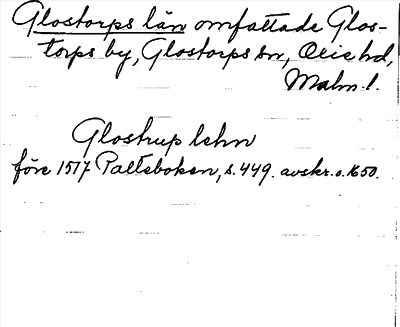 Glostorps län omfattade Glos-
torps by, Glostorps sn, Oxie hd,
Malm. l.
Glostrup lehn
före 1517 Palteboken, s. 449. avskr. o. 1650.